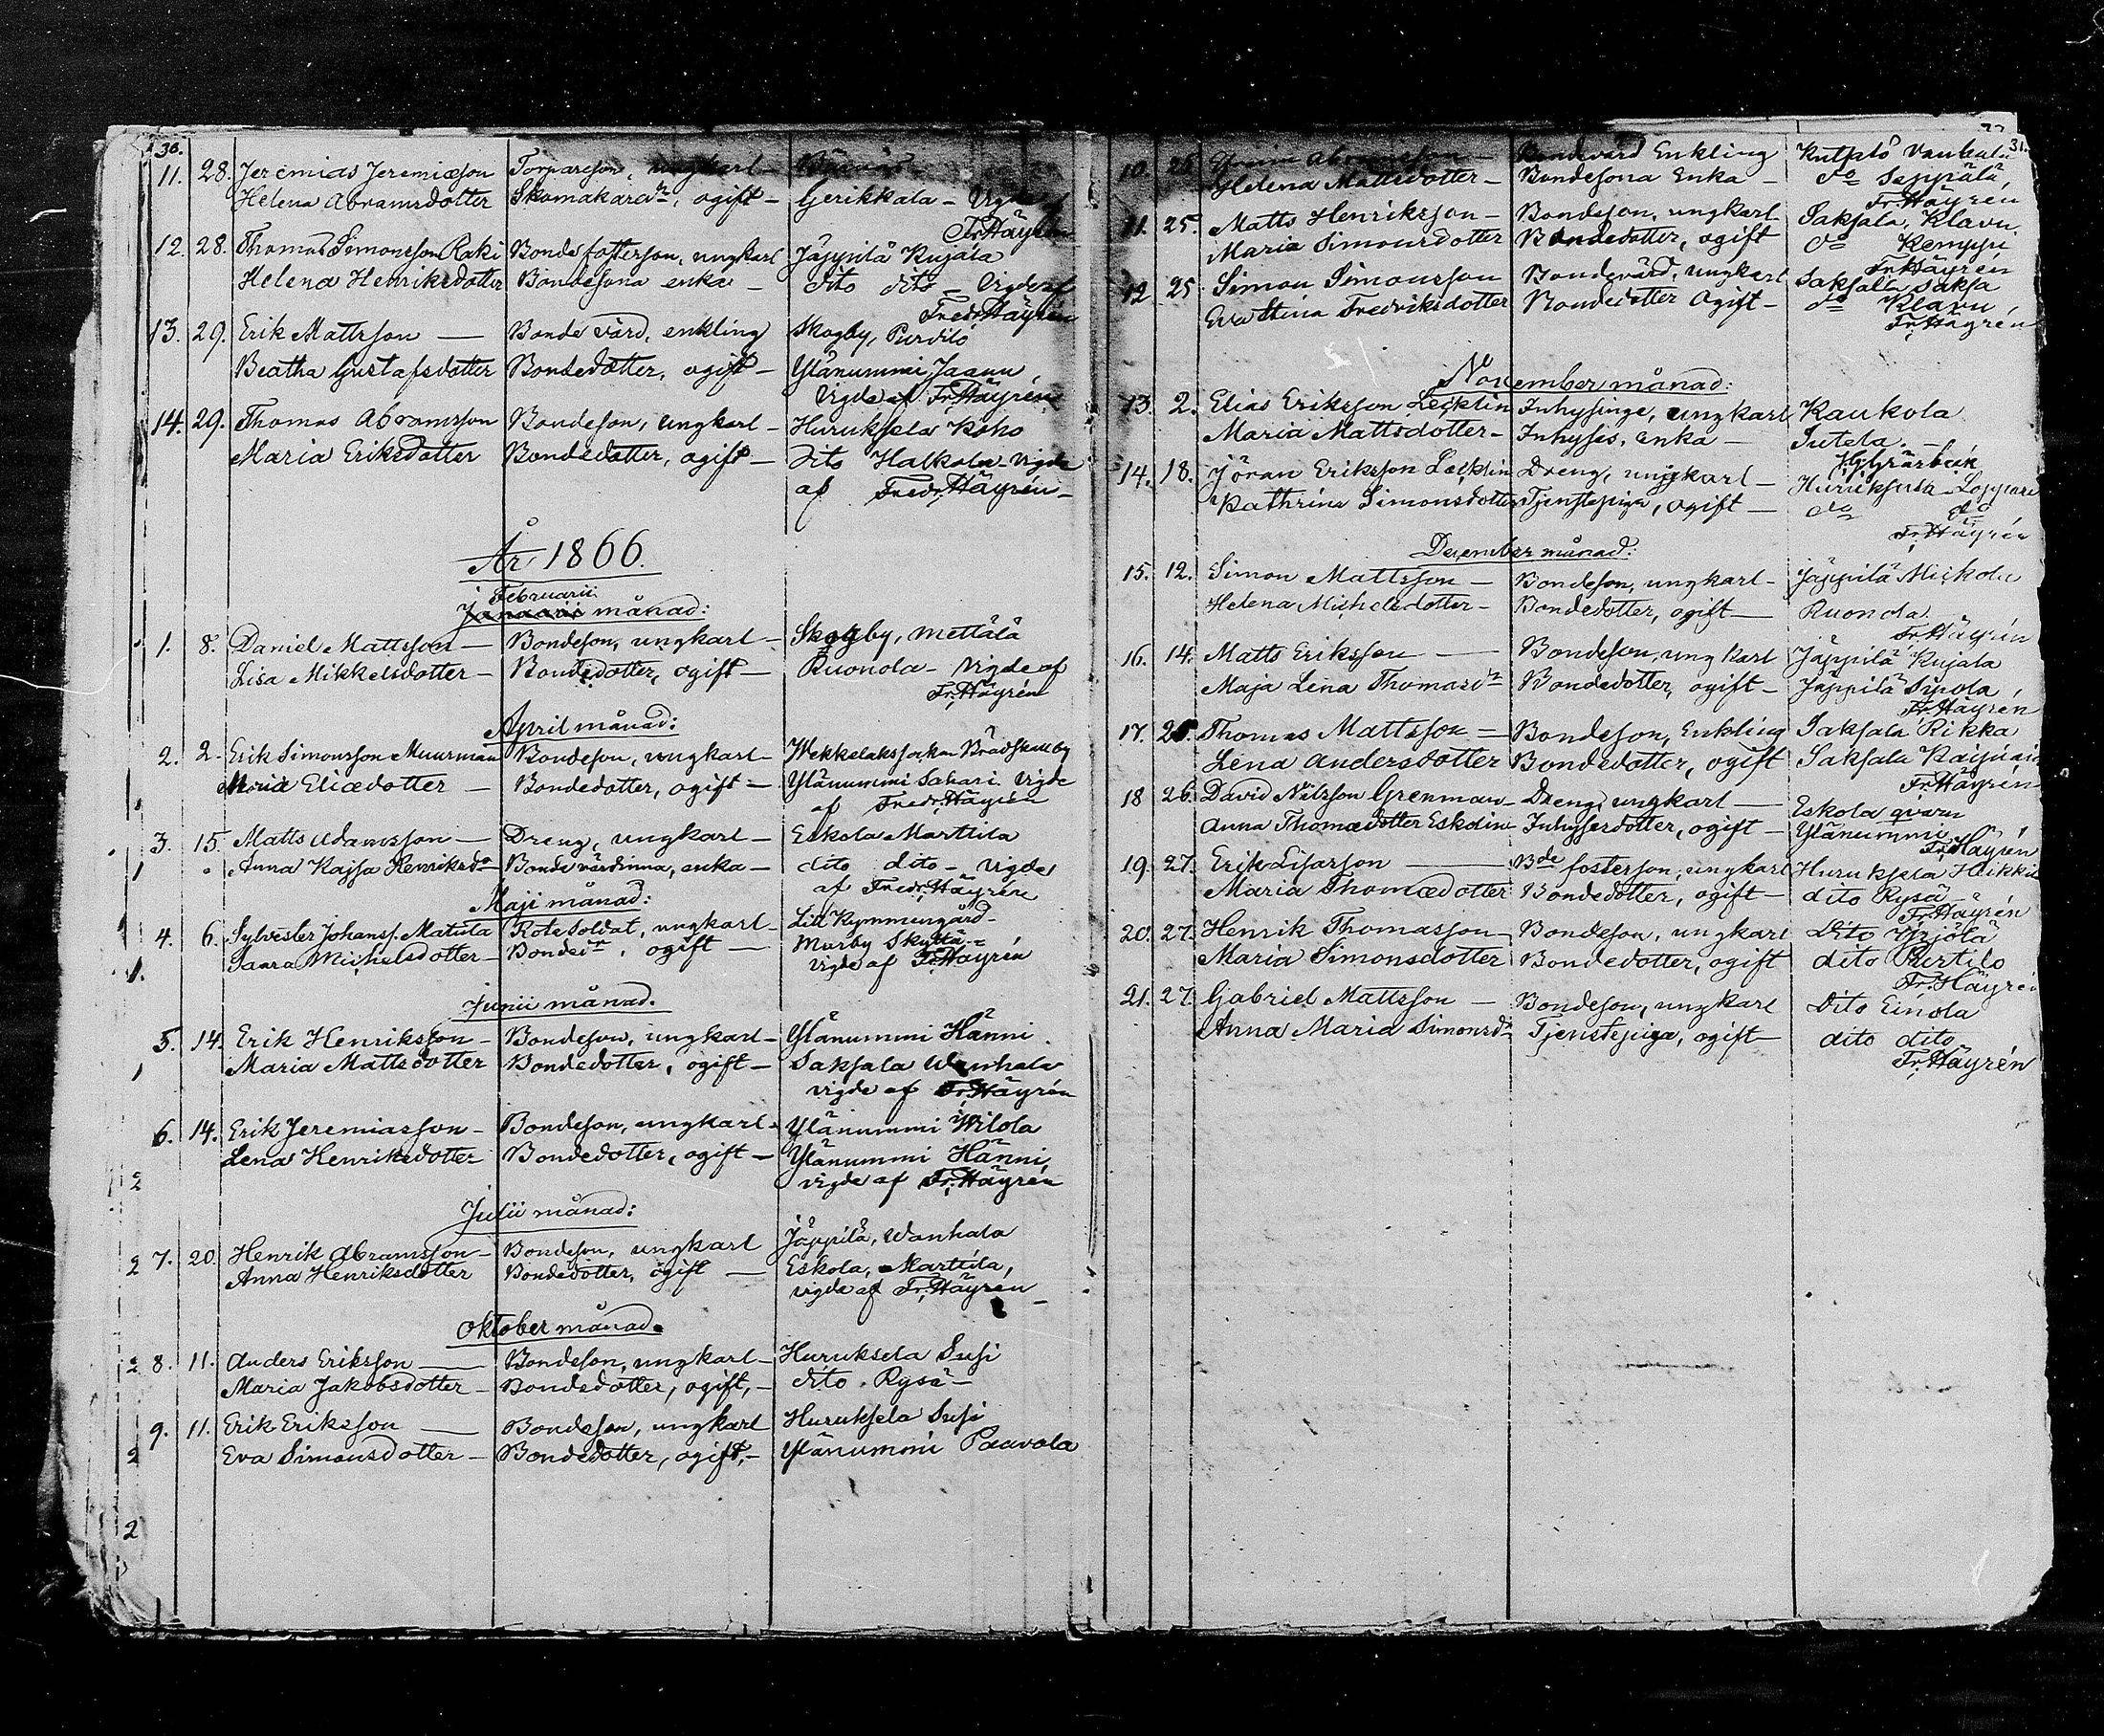 30.
11. 28. Jeremias Jeremiæson Torpareson, ungkarl –
Helena Abramsdotter Skomakaredr, ogift – Gerikkala – Vigde af
Fr. Häyrén
12. 28. Thomas Simonsson Raki Bonde fosterson, ungkarl Jäppilä Kujala
Helena Henriksdotter Bondesona enka – dito dito – Vigde af
Fredr. Häyrén
13. 29. Erik Mattsson — Bonde värd, enkling Skogby, Purdilö
Beatha Gustafsdotter Bondedotter, ogift – Ylänummi Jaanu,
Vigde af Fr. Häyrén
14. 29. Thomas Abramsson Bondeson, ungkarl – Huruksela Koho
Maria Eriksdotter Bondedotter, ogift – dito Halkola – vigde
af Fredr. Häyrén –
År 1866.
Februarii
Januarii månad:
1. 8. Daniel Mattsson — Bondeson, ungkarl – Skogby, Mettälä
Lisa Mikkelsdotter – Bondedotter, ogift – Ruonola – Vigde af
Fr. Häyrén
April månad:
2. 2. Erik Simonsson Muurman Bondeson, ungkarl – Wekkelaks socken Brädskallby
Maria Eliædotter – Bondedotter, ogift – Ylänummi Sakari. Vigde
af Fredr. Häyrén
3. 15. Matts Adamsson — Dreng, ungkarl – Eskola Marttila
Anna Kajsa Henriksdr Bonde värdinna, enka – dito dito – Vigde
af Fredr. Häyrén
Maji månad:
4. 6. Sylvester Johanss. Matula Rote Soldat, ungkarl – Lill Kymmenegård –
Saara Michelsdotter – Bondedr, ogift — Munby Skyttä –
vigde af Fr. Häyrén
Junii månad.
5. 14. Erik Henriksson – Bondeson, ungkarl – Ylänummi Hänni
Maria Mattsdotter Bondedotter, ogift – Saksala Wanhala
vigde af Fr. Häyrén
6. 14. Erik Jeremiasson – Bondeson, ungkarl – Ylänummi Wilola
Lena Henriksdotter Bondedotter, ogift – Ylänummi Hänni,
vigde af Fr. Häyrén
Julii månad:
7. 20. Henrik Abramsson – Bondeson, ungkarl Jäppilä, Wanhala
Anna Henriksdotter Bondedotter, ogift — Eskola, Marttila,
vigde af Fr. Häyrén –
Oktober månad.
8. 11. Anders Eriksson — Bondeson, ungkarl – Huruksela Susi
Maria Jakobsdotter – Bondedotter, ogift, – dito. Rysä –
9. 11. Erik Eriksson — Bondeson, ungkarl Huruksela Susi
Eva Simonsdotter – Bondedotter, ogift, – Ylänummi Paavola
31.
10. 25. Abramsson – Bondevärd Enkling Kutplö Vanhala
Helena Mattsdotter – Bondesona Enka – do Seppälä,
Fr. Häyrén
11. 25. Matts Henriksson – Bondeson, ungkarl Saksala, Klavu,
Maria Simonsdotter Bondedotter, ogift do Kemppi
Fr. Häyrén
12. 25. Simon Simonsson Bondevärd, ungkarl Saksala Saksa
Eva Stina Fredriksdotter Bondedotter Ogift – do Klavu,
Fr. Häyrén
November månad:
13. 2. Elias Eriksson Lecklin Inhysinge, ungkarl Kaukola
Maria Mattsdotter – Inhyses, enka – Sutela. –
14. 18. Jöran Eriksson Lecklin Dreng, ungkarl – Huruksela Loppari
Kathrina Simonsdotter Tjenstepiga, ogift – do do
Fr. Häyrén
December månad:
15. 12. Simon Mattsson – Bondeson, ungkarl – Jäppilä Mickola
Helena Michelsdotter – Bondedotter, ogift — Ruonola.
Fr. Häyrén
16. 14. Matts Eriksson — Bondeson, ungkarl Jäppilä Kujala
Maja Lena Thomasdr Bondedotter, ogift – Jäppilä Sipola,
Fr. Häyrén
17. 25. Thomas Mattsson – Bondeson, Enkling Saksala Rikka
Lena Andersdotter Bondedotter, ogift Saksala
Fr. Häyrén
18 26. David Nilsson Grenman – Dreng, ungkarl — Eskola qvarn
Anna Thomædotter Eskolin – Inhysesdotter, ogift – Ylänummi,
Fr. Häyrén
19. 27. Erik Lisasson — Bde fosterson, ungkarl Huruksela Heikkilä
Maria Thomædotter Bondedotter, ogift – dito Rysä –
Fr. Häyrén
20. 27. Henrik Thomasson – Bondeson, ungkarl Dito Yrjölä
Maria Simonsdotter Bondedotter, ogift dito Perttilö
Fr. Häyrén
21. 27 Gabriel Mattsson – Bondeson, ungkarl Dito Einola
Anna Maria Simonsdr Tjenstepiga, ogift – dito dito
Fr. Häyrén